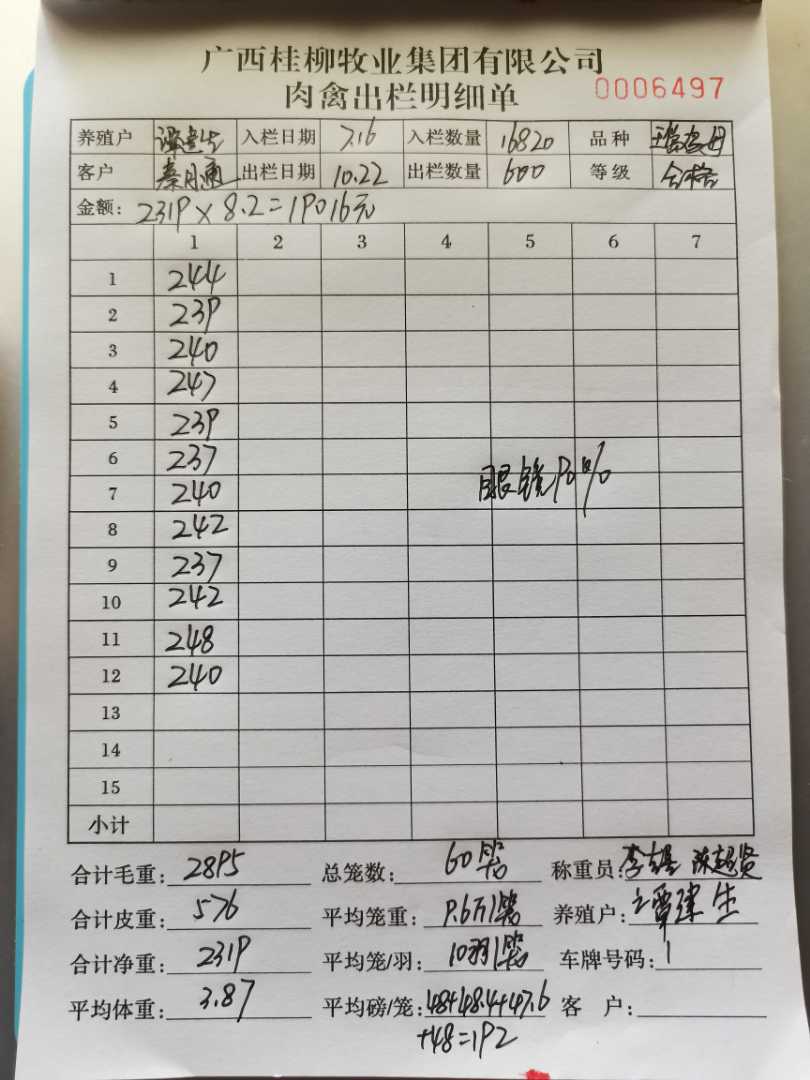 广西桂柳牧业集团有限公司
肉禽出栏明细单 0006497
养殖户 覃建生 入栏日期 7.16 入栏数量 16820 品种
客户 秦月 出栏日期 10.22 出栏数量 600 等级 合格
金额: 2319×8.2=19016元
1 2 3 4 5 6 7
1 244
2 239
3 240
4 247
5 239
6 237
眼镜90%
7 240
8 242
9 237
10 242
11 248
12 240
13
14
15
小计
合计毛重: 2895 总笼数: 60笼 称重员: 李 陈超贤
合计皮重: 576 平均笼重: 9.6斤/笼 养殖户: 覃建生
合计净重: 2319 平均笼/羽: 10羽/笼 车牌号码: 1
平均体重: 3.87 平均磅/笼: 48+48.4+47.6 客 户:
+48=192